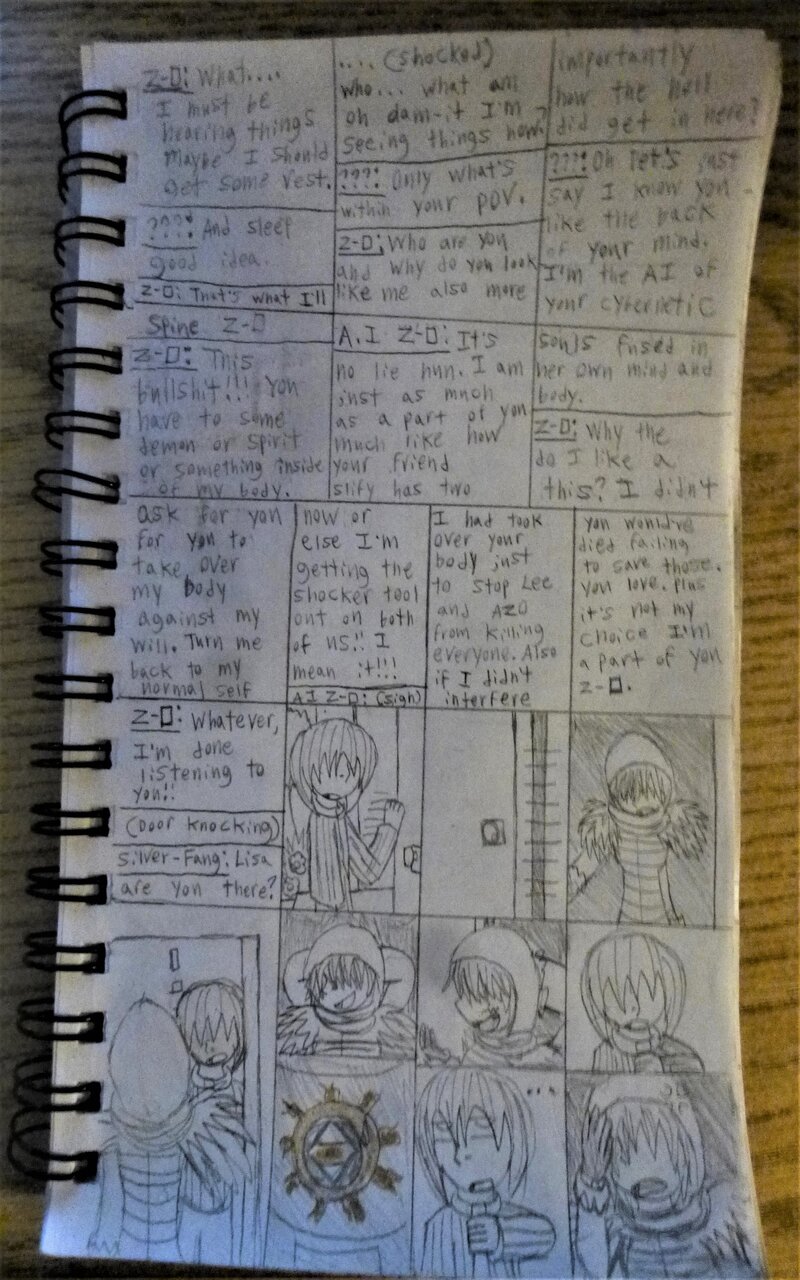 Z-O: What....
I must be
hearing things
maybe I should
get some rest.
???: And sleep
good idea.
Z-O: That's what I'll
.... (shocked)
who... what am
oh dam-it I'm
seeing things now?
???: Only what's
within your POV.
Z-O: Who are you
and why do you look
like me also more
importantly
how the hell
did get in here?
???: Oh let's just
say I know you
like the back
of your mind.
I'm the AI of
your cybernetic
Spine Z-O
Z-O: This
bullshit!!! You
have to some
demon or spirit
or something inside
of my body.
A.I Z-O: It's
no lie hun. I am
just as much
as a part of you
much like how
your friend
slify has two
souls fused in
her own mind and
body.
Z-O: Why the
do I like a
this? I didn't
ask for you
for you to
take over
my body
against my
will. Turn me
back to my
normal self
now or
else I'm
getting the
shocker tool
out on both
of us!! I
mean it!!!
AI Z-O: (sigh)
I had took
over your
body just
to stop Lee
and AZO
from killing
everyone. Also
if I didn't
interfere
you would've
died failing
to save those.
you love. Plus
it's not my
choice I'm
a part of you
Z-O.
Z-O: Whatever,
I'm done
listening to
you!!
(Door knocking)
Silver-Fang: Lisa
are you there?
...